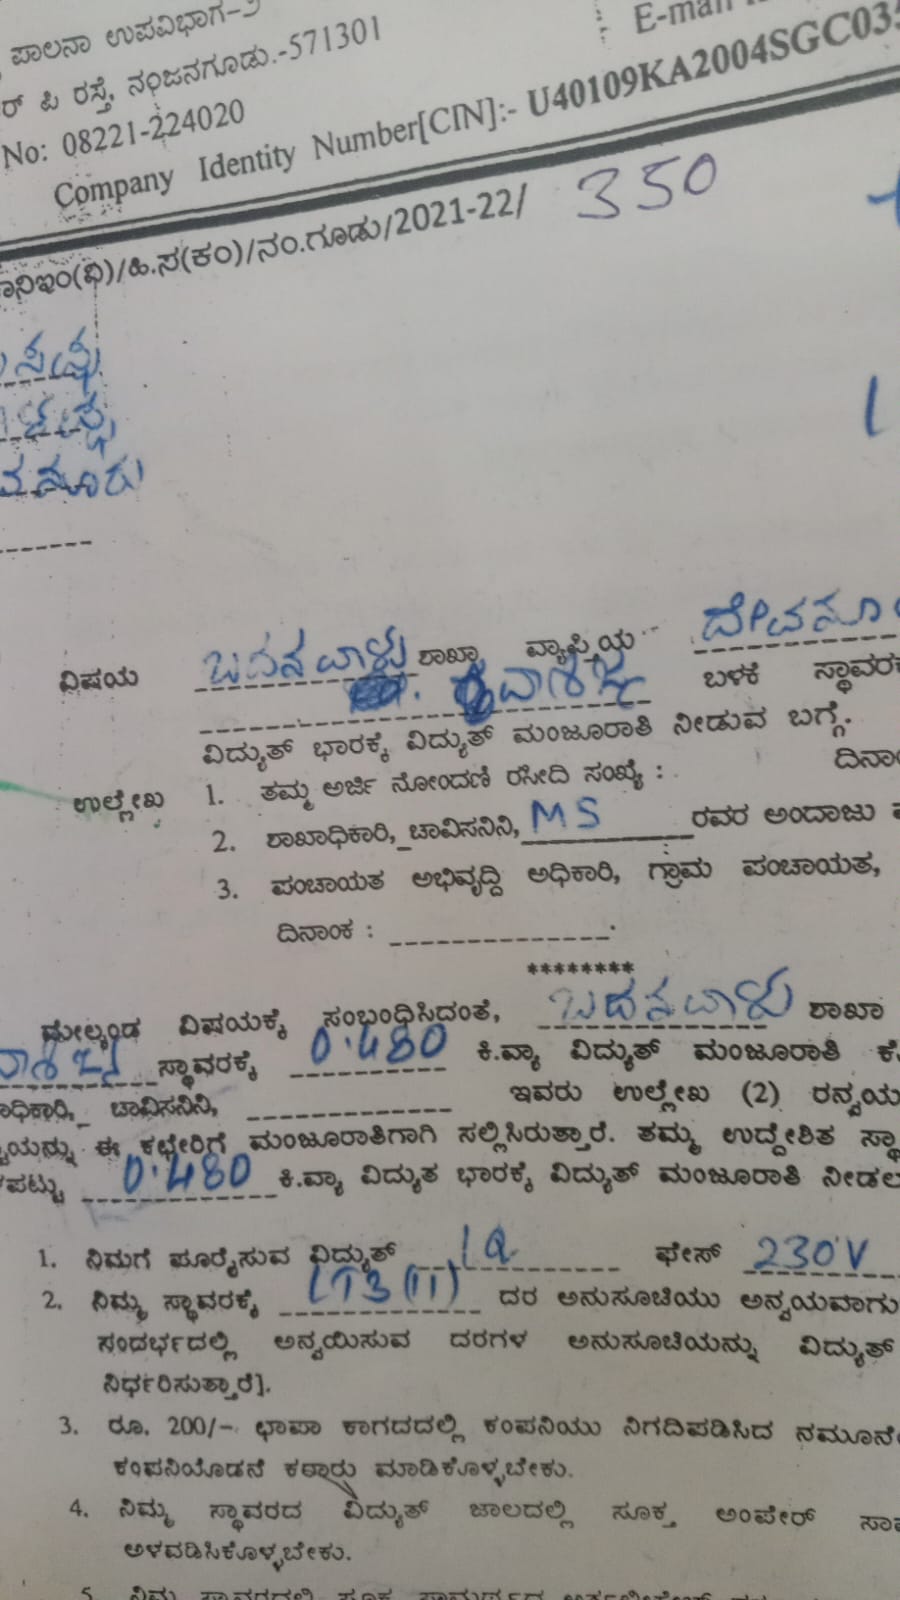 ಪಾಲನಾ ಉಪವಿಭಾಗ-
ಆರ್ ಪಿ ರಸ್ತೆ, ನಂಜನಗೂಡು.-571301
E-mail
No: 08221-224020
Company Identity Number[CIN]:- U40109KA2004SGC03
/ಹಿ.ಸ(ಕಂ)/ನಂ.ಗೂಡು/2021-22/ 350
ವಿಷಯ ಬದನವಾಳು ಶಾಖಾ ವ್ಯಾಪ್ತಿಯ ದೇವನೂ
ವಾಣಿಜ್ಯ ಬಳಕೆ ಸ್ಥಾವರ
ವಿದ್ಯುತ್ ಭಾರಕ್ಕೆ ವಿದ್ಯುತ್ ಮಂಜೂರಾತಿ ನೀಡುವ ಬಗ್ಗೆ.
ಉಲ್ಲೇಖ 1. ತಮ್ಮ ಅರ್ಜಿ ನೋಂದಣಿ ರಸೀದಿ ಸಂಖ್ಯೆ : ದಿನಾಂ
2. ಶಾಖಾಧಿಕಾರಿ, ಚಾವಿಸನಿನಿ, MS ರವರ ಅಂದಾಜು
3. ಪಂಚಾಯತ ಅಭಿವೃದ್ದಿ ಅಧಿಕಾರಿ, ಗ್ರಾಮ ಪಂಚಾಯತ,
ದಿನಾಂಕ :
********
ಮೇಲ್ಕಂಡ ವಿಷಯಕ್ಕೆ ಸಂಬಂಧಿಸಿದಂತೆ, ಬದನವಾಳು ಶಾಖಾ
ವಾಣಿಜ್ಯ ಸ್ಥಾವರಕ್ಕೆ 0.480 ಕಿ.ವ್ಯಾ ವಿದ್ಯುತ್ ಮಂಜೂರಾತಿ
ಾಧಿಕಾರಿ, ಚಾವಿಸನಿನಿ, ಇವರು ಉಲ್ಲೇಖ (2) ರನ್ವಯ
ಯನ್ನು ಈ ಕಛೇರಿಗೆ ಮಂಜೂರಾತಿಗಾಗಿ ಸಲ್ಲಿಸಿರುತ್ತಾರೆ. ತಮ್ಮ ಉದ್ದೇಶಿತ ಸ್ಥಾ
ಪಟ್ಟು 0.480 ಕಿ.ವ್ಯಾ ವಿದ್ಯುತ ಭಾರಕ್ಕೆ ವಿದ್ಯುತ್ ಮಂಜೂರಾತಿ ನೀಡಲ
1. ನಿಮಗೆ ಪೂರೈಸುವ ವಿದ್ಯುತ್ ಫೇಸ್ 230V
2. ನಿಮ್ಮ ಸ್ಥಾವರಕ್ಕೆ LT3(ii) ದರ ಅನುಸೂಚಿಯು ಅನ್ವಯವಾಗು
ಸಂದರ್ಭದಲ್ಲಿ ಅನ್ವಯಿಸುವ ದರಗಳ ಅನುಸೂಚಿಯನ್ನು ವಿದ್ಯುತ್
ನಿರ್ಧರಿಸುತ್ತಾರೆ].
3. ರೂ. 200/- ಛಾಪಾ ಕಾಗದದಲ್ಲಿ ಕಂಪನಿಯು ನಿಗದಿಪಡಿಸಿದ ನಮೂನೆ
ಕಂಪನಿಯೊಡನೆ ಕರಾರು ಮಾಡಿಕೊಳ್ಳಬೇಕು.
4. ನಿಮ್ಮ ಸ್ಥಾವರದ ವಿದ್ಯುತ್ ಜಾಲದಲ್ಲಿ ಸೂಕ್ತ ಅಂಪೇರ್ ಸಾ
ಅಳವಡಿಸಿಕೊಳ್ಳಬೇಕು.